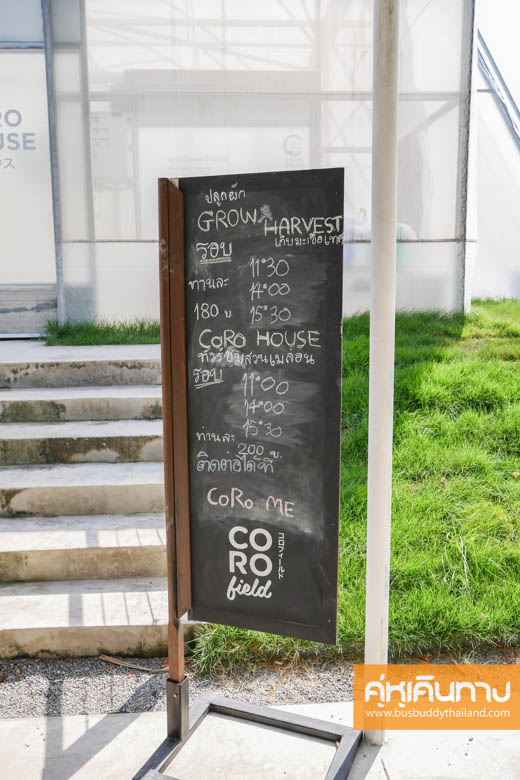 RO
OUSE
ウス
ปลูกผัก
GROW HARVEST
เก็บมะเขือเทศ
รอบ 11:30
ท่านละ 14:00
180 บ. 15:30
CORO HOUSE
ทัวร์ชิมสวนเมล่อน
รอบ 11:00
14:00
15:30
ท่านละ 200 บ.
ติดต่อได้ที่
CoRo ME
CO
RO
field
コロフィールド
คู่หูเดินทาง
www.busbuddythailand.com